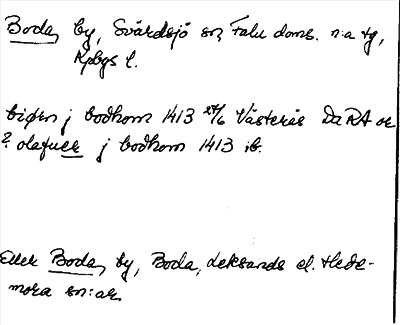 Boda, by, Svärdsjö sn, Falu doms. n:a tg,
Kpbgs l.
biørn j bodhom 1413 24/6 Västerås DaRA or
? olafuer j bodhom 1413 ib.
Eller Boda, by, Boda, Leksands el. Hede-
mora sn:ar